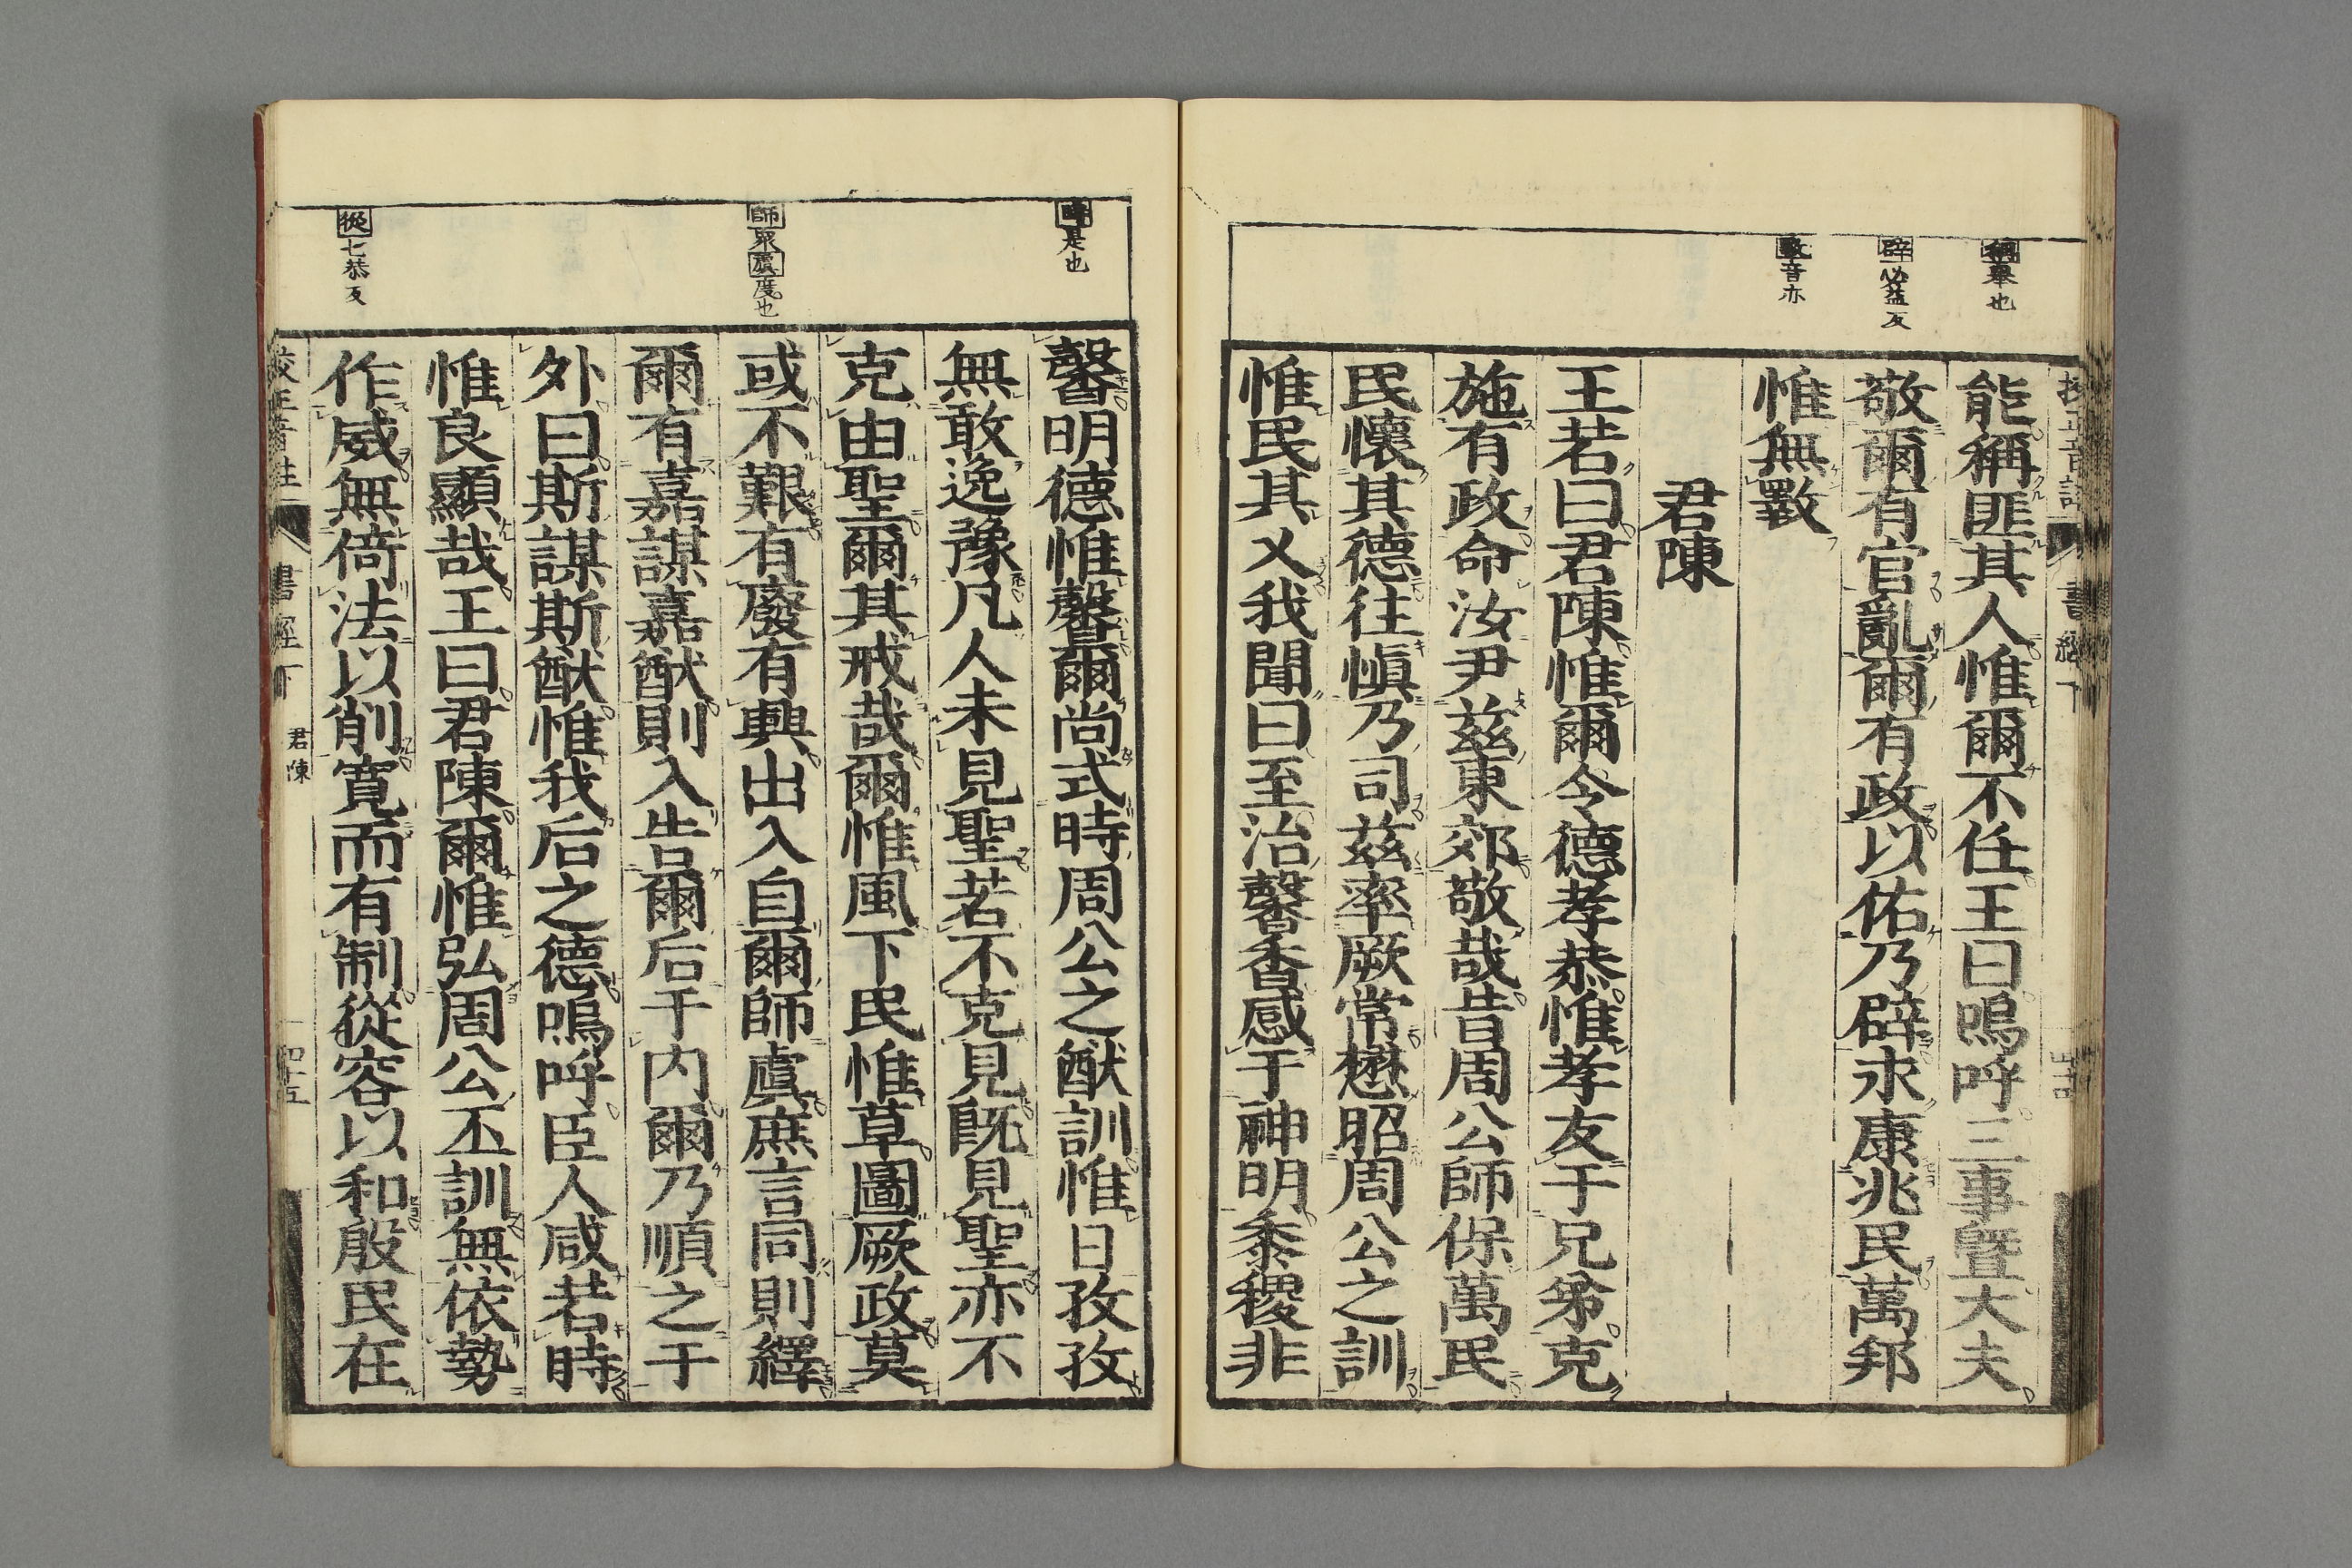 稱舉也
辟必益反
斁音亦
能稱匪其人惟爾不任王曰嗚呼三事曁大夫
敬爾有官亂爾有政以佑乃辟永康兆民萬邦
惟無斁
君陳
王若曰君陳惟爾令德孝恭惟孝友于兄弟克
施有政命汝尹茲東郊敬哉昔周公師保萬民
民懷其德往愼乃司茲率厥常懋昭周公之訓
惟民其乂我聞曰至治馨香感于神明黍稷非
時是也
師衆虞度也
從七恭反
馨明德惟馨爾尚式時周公之猷訓惟日孜孜
無敢逸豫凡人未見聖若不克見旣見聖亦不
克由聖爾其戒哉爾惟風下民惟草圖厥政莫
或不艱有廢有興出入自爾師虞庶言同則繹
爾有嘉謀嘉猷則入告爾后于内爾乃順之于
外曰斯謀斯猷惟我后之德嗚呼臣人咸若時
惟良顯哉王曰君陳爾惟弘周公丕訓無依勢
作威無倚法以削寬而有制從容以和殷民在
書經下 君陳